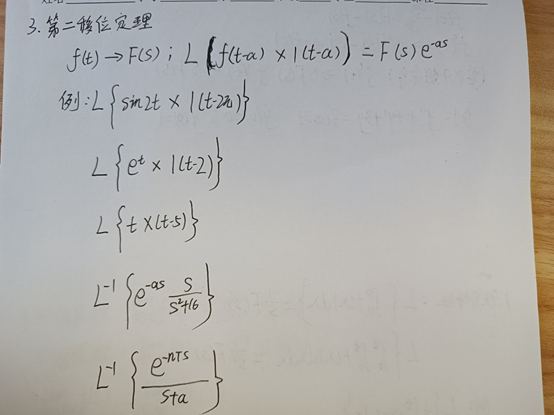 3. 第二移位定理
f(t) → F(s) ; L (f(t-a) × 1(t-a)) = F(s) e^{-as}
例: L {sin2t × 1(t-2π)}
L {e^t × 1(t-2)}
L {t × (t-5)}
L^{-1} {e^{-as} \frac{s}{s^2+16}}
L^{-1} {\frac{e^{-nTs}}{s+a}}